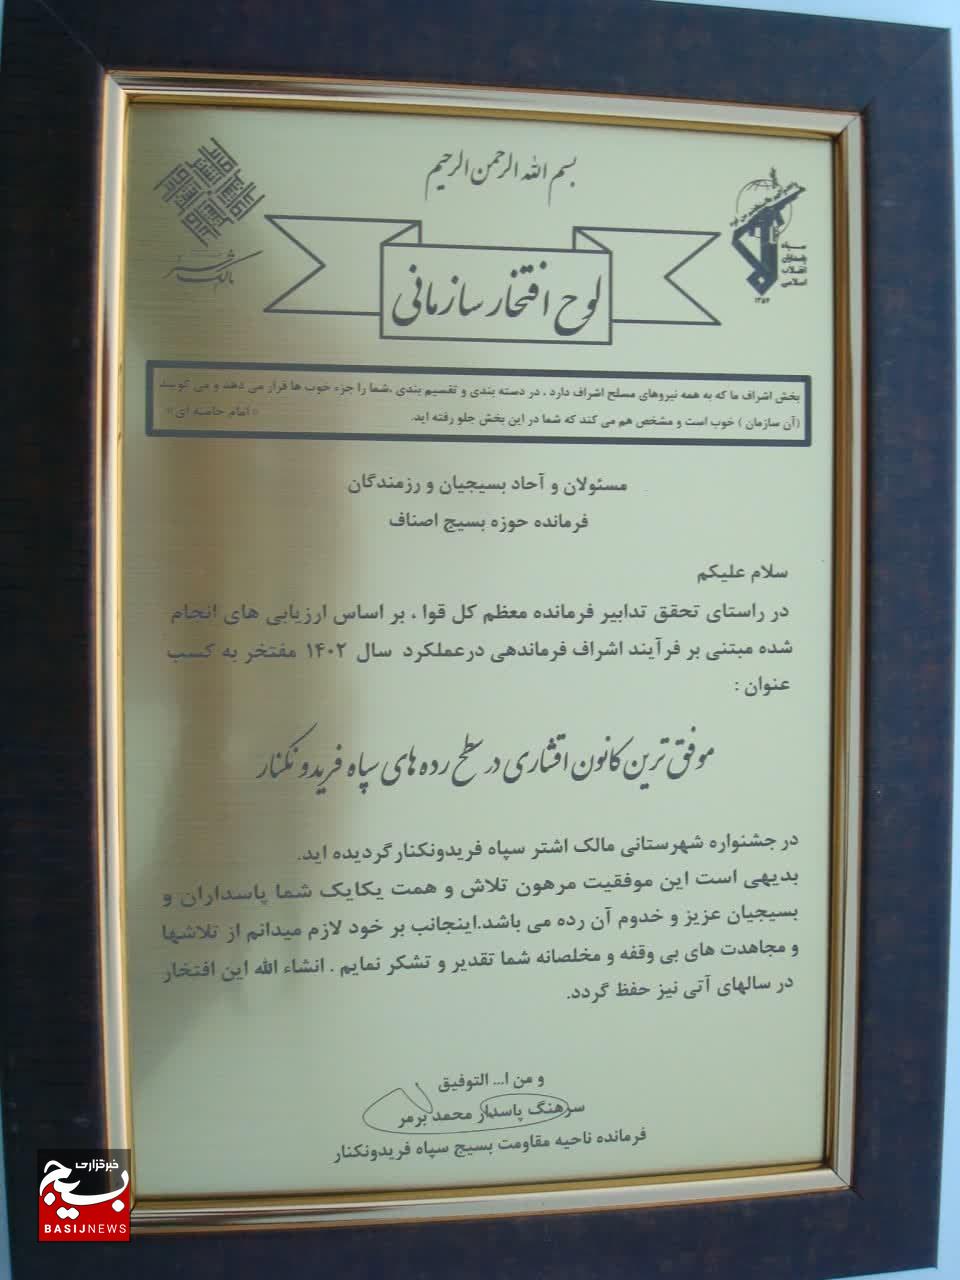 بسم الله الرحمن الرحیم
سپاه
پاسداران
انقلاب
اسلامی
۱۳۵۷
مالک اشتر
لوح افتخار سازمانی
بخش اشراف ما که به همه نیروهای مسلح اشراف دارد ، در دسته بندی و تقسیم بندی ،شما را جزء خوب ها قرار می دهد و می گویند
(آن سازمان ) خوب است و مشخص هم می کند که شما در این بخش جلو رفته اید. « امام خامنه ای»
مسئولان و آحاد بسیجیان و رزمندگان
فرمانده حوزه بسیج اصناف
سلام علیکم
در راستای تحقق تدابیر فرمانده معظم کل قوا ، بر اساس ارزیابی های انجام
شده مبتنی بر فرآیند اشراف فرماندهی درعملکرد سال ۱۴۰۲ مفتخر به کسب
عنوان :
موفق ترین کانون اقشاری در سطح رده های سپاه فریدونکنار
در جشنواره شهرستانی مالک اشتر سپاه فریدونکنارگردیده اید.
بدیهی است این موفقیت مرهون تلاش و همت یکایک شما پاسداران و
بسیجیان عزیز و خدوم آن رده می باشد.اینجانب بر خود لازم میدانم از تلاشها
و مجاهدت های بی وقفه و مخلصانه شما تقدیر و تشکر نمایم . انشاء الله این افتخار
در سالهای آتی نیز حفظ گردد.
و من ا... التوفیق
سرهنگ پاسدار محمد برمر
فرمانده ناحیه مقاومت بسیج سپاه فریدونکنار
خبرگزاری
بسیج
BASIJNEWS